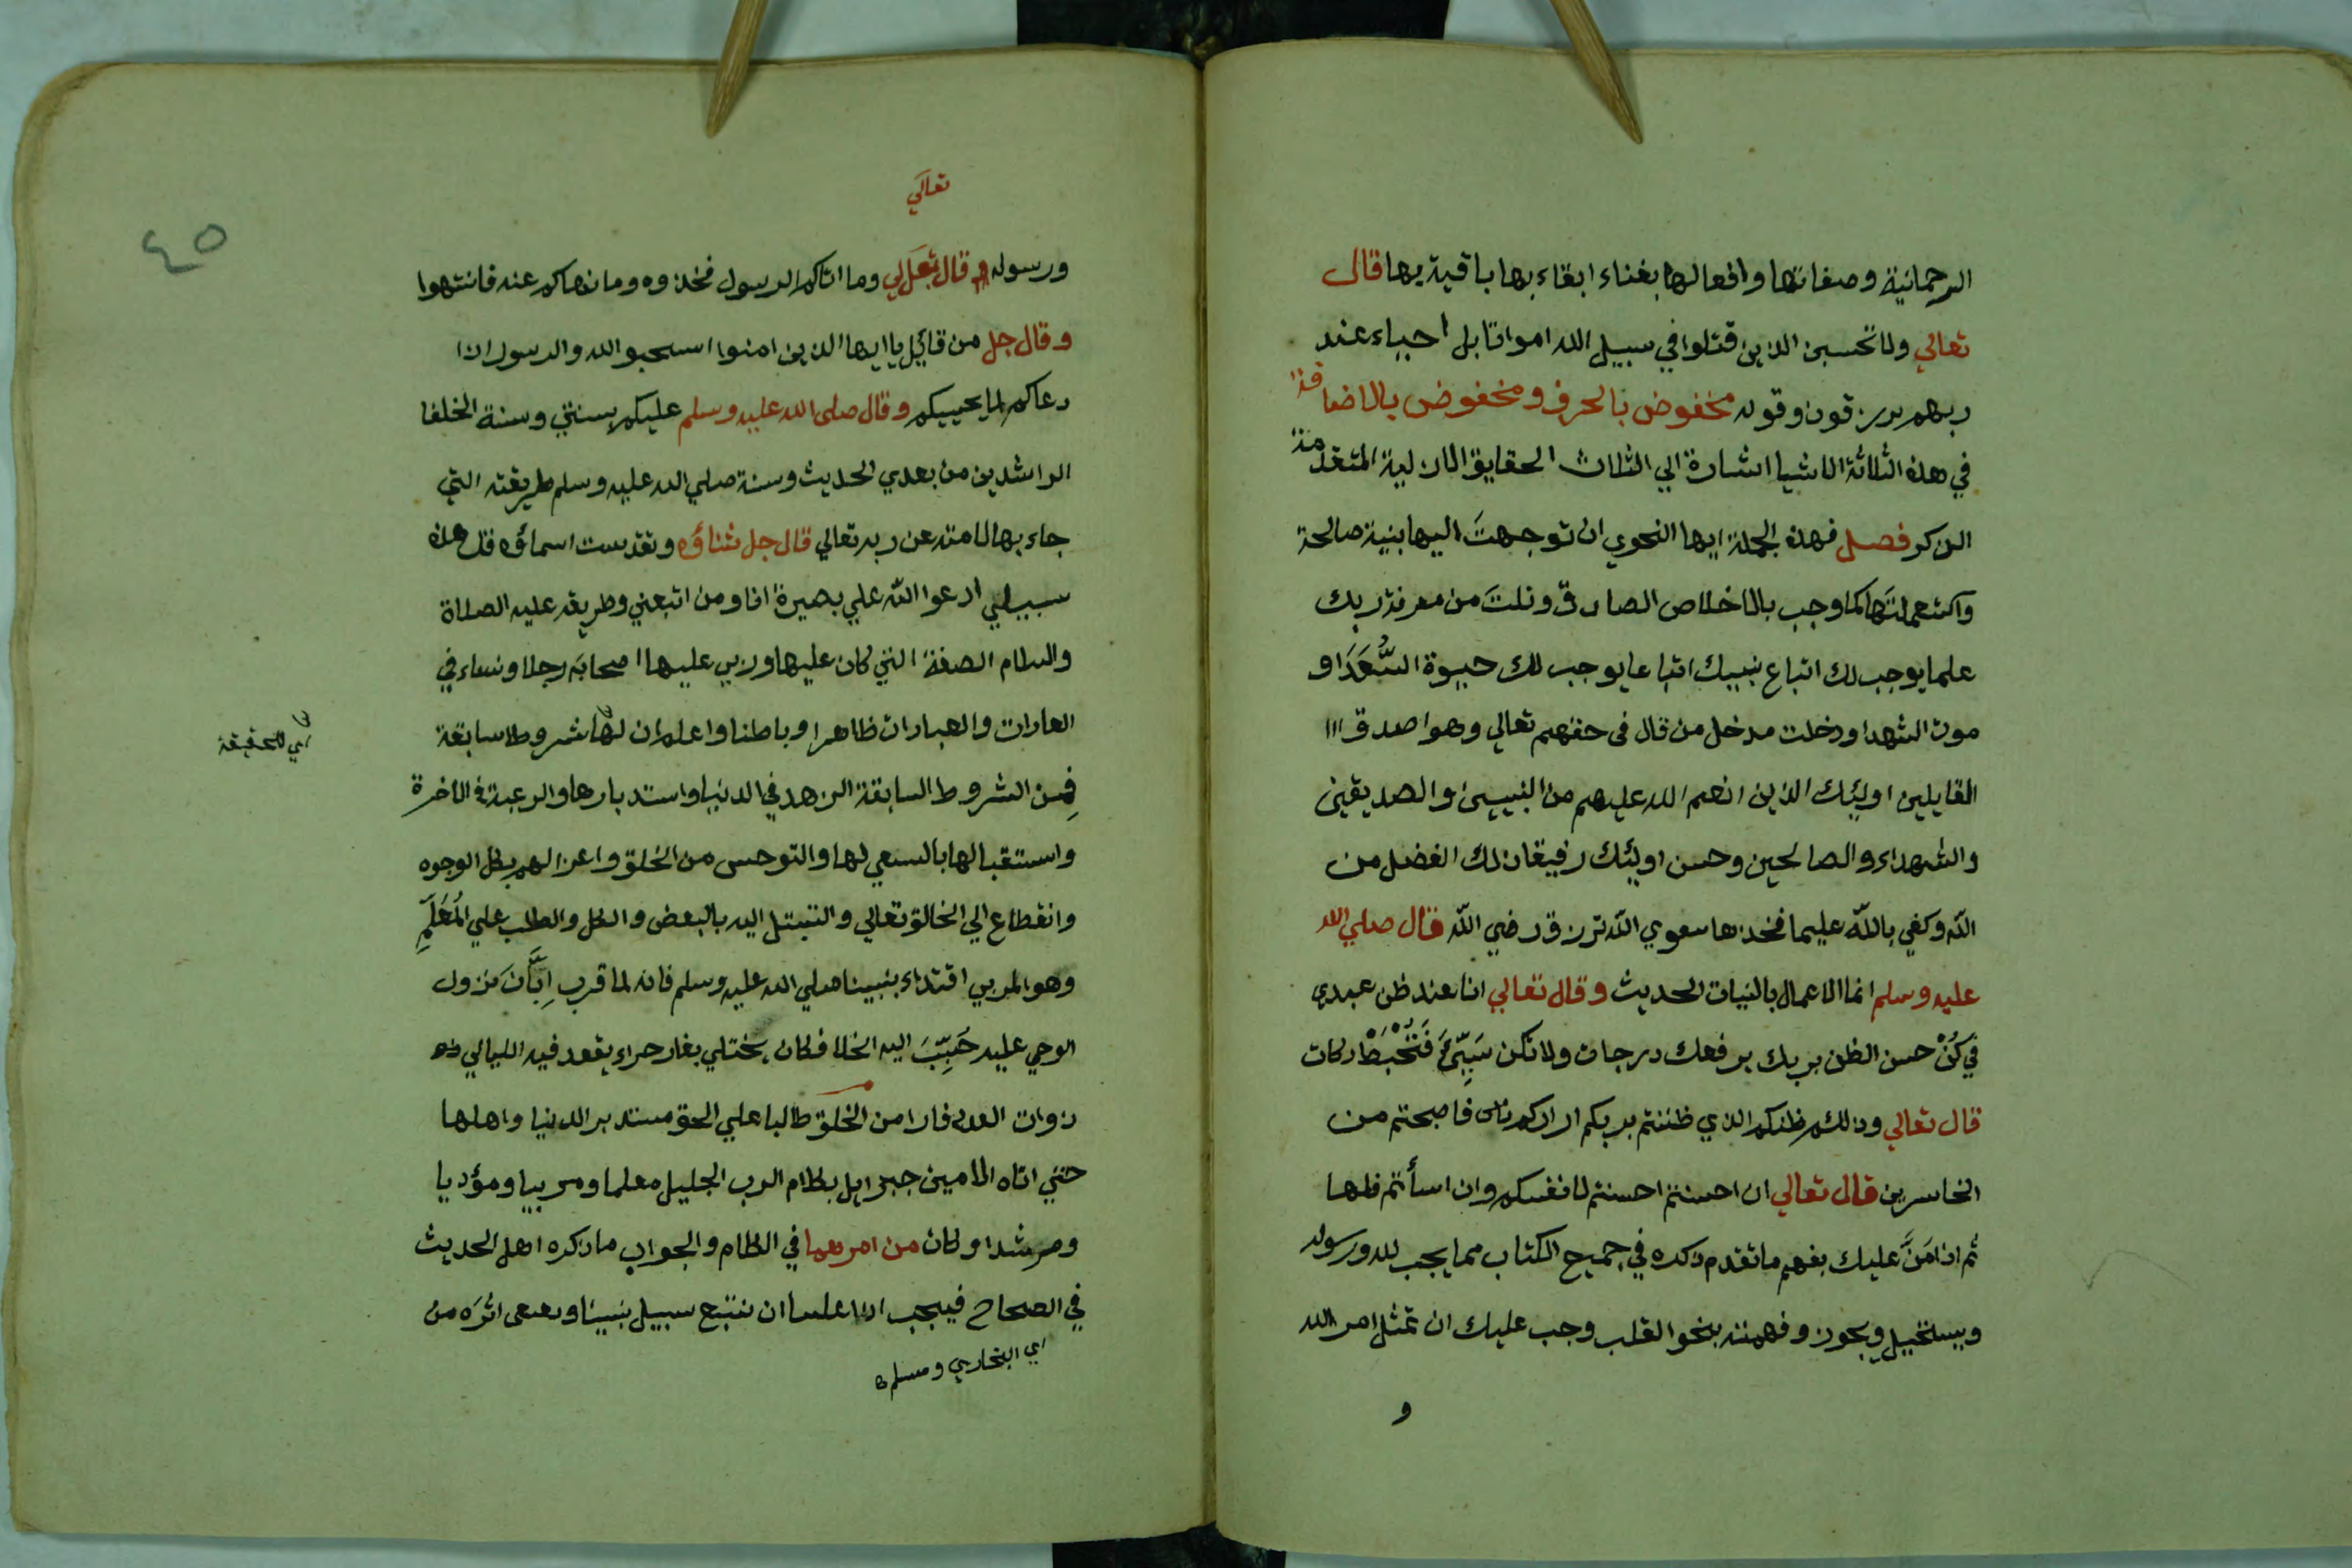 الرحمانية وصفاتها وافعالها بفناء ابقاء بها باقية بها قال
تعالي ولا تحسبن الذين قتلوا في سبيل الله امواتا بل احياء عند
ربهم يرزقون وقوله مخفوض بالحرف ومخفوض بالاضافة
في هذه الثلاثة الاشيا اشارة الي الثلاث الحقايق الازلية المتقدمة
الذكر فصل فهذه الجملة ايها النحوي ان توجهتَ اليها بنية صالحة
واستعملتَها كما وجب بالاخلاص الصادق ونلتَ من معرفة ربك
علما يوجب لك اتباع نبيك اتباعا يوجب لك حيوة السُّعَدَا و
موت الشهدا ودخلت مدخل من قال في حقهم تعالي وهو اصدق
القايلين اوليٓك الذين انعم الله عليهم من النبيين والصديقين
والشهداء والصالحين وحسن اوليٓك رفيقا ذلك الفضل من
الله وكفي بالله عليما فخذها بتقوي الله ترزق رضي الله قال صلي الله
عليه وسلم انما الاعمال بالنيات الحديث وقال تعالي انا عند ظن عبدي
في كُنْ حسن الظن بربك يرفعك درجات ولا تكن سَيِّئَ فَتُخْبَطْ دركات
قال تعالي وذالكم ظنكم الذي ظننتم بربكم ارداكم فاصبحتم من
الخاسرين قال تعالي ان احسنتم احسنتم لانفسكم وان اسأتم فلها
ثم اذا مَنَّ عليك بفهم ما تقدم ذكره في جميع الكتاب مما يجب لله ورسوله
ويستحيل ويجوز وفهمته بنحو القلب وجب عليك ان تمثل امر الله
و
تعالَي
٤٥
ورسوله قال تعالي وما اتاكم الرسول فخذوه وما نهاكم عنه فانتهوا
وقال جل من قائل يا ايها الذين امنوا استجيبو الله والرسول اذا
دعاكم لما يحييكم وقال صلى الله عليه وسلم عليكم بسنتي وسنة الخلفا
الراشدين من بعدي الحديث وسنة صلي الله عليه وسلم طريقته التي
جاء بها لامته عن ربه تعالي قال جل ثناؤه وتقدست اسماؤه قل هذه
سبيلي ادعوا الله علي بصيرة انا ومن اتبعني وطريقه عليه الصلاة
والسلام الصفة التي كان عليها وربي عليها اصحابه رجلا ونساء في
العادات والعبادات ظاهرا وباطنا واعلم ان لها شروطا سابقة
اي للحقيقة
فمِن الشروط السابقة الزهد في الدنيا واستدبارها والرغبة في الاخرة
واستقبالها بالسعي لها والتوحس من الخلق واعتزالهم بكل الوجوه
وانقطاع الي الخالق تعالي والتبتل اليه بالبعض والكل والطلب علي المُعَلِّمِ
وهو المربي اقتداء بنبينا صلي الله عليه وسلم فانه لما قرب اِبَّانَ نزول
الوحي عليه حَبِّبَ اليه الخلا فكان يختلي بغار حراء يقعد فيه الليالي
ذوات العدد فارا من الخلق طالبا علي الحق مستدبر الدنيا واهلها
حتي اتاه الامين جبرايل بكلام الرب الجليل معلما ومربيا ومؤدبا
ومرشدا وكان من امرهما في الكلام والجواب ما ذكره اهل الحديث
في الصحاح فيجب علينا ان نتبع سبيل نبينا ونقتفي اثرَه من
اي البخاري ومسلم